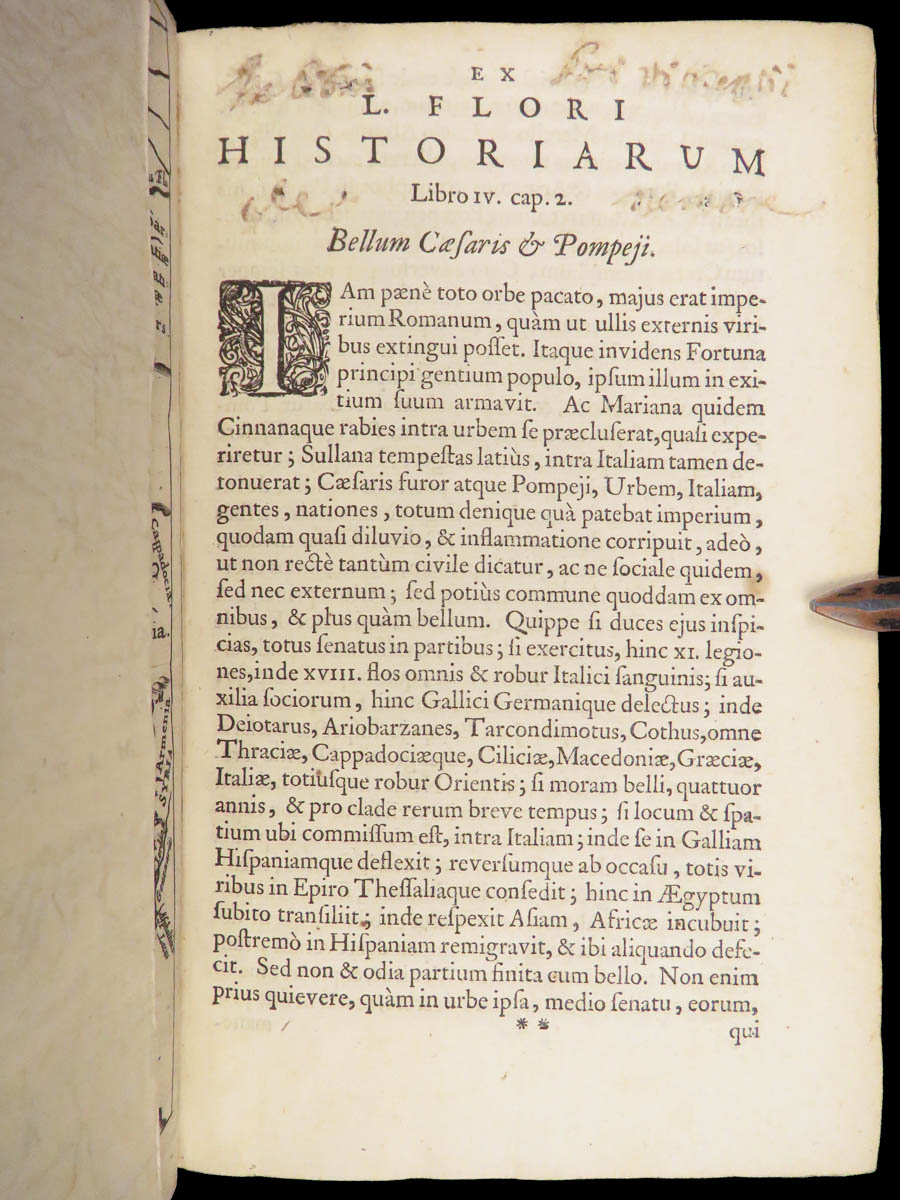 EX
L. FLORI
HISTORIARUM
Libro IV. cap. 2.
Bellum Cæſaris & Pompeji.
IAm pænè toto orbe pacato, majus erat impe-
rium Romanum, quàm ut ullis externis viri-
bus extingui poſſet. Itaque invidens Fortuna
principi gentium populo, ipſum illum in exi-
tium ſuum armavit. Ac Mariana quidem
Cinnanaque rabies intra urbem ſe præcluſerat, quaſi expe-
riretur; Sullana tempeſtas latiùs, intra Italiam tamen de-
tonuerat; Cæſaris furor atque Pompeji, Urbem, Italiam,
gentes, nationes, totum denique quà patebat imperium,
quodam quaſi diluvio, & inflammatione corripuit, adeò,
ut non rectè tantùm civile dicatur, ac ne ſociale quidem,
ſed nec externum; ſed potiùs commune quoddam ex om-
nibus, & plus quàm bellum. Quippe ſi duces ejus inſpi-
cias, totus ſenatus in partibus; ſi exercitus, hinc XI. legio-
nes, inde XVIII. flos omnis & robur Italici ſanguinis; ſi au-
xilia ſociorum, hinc Gallici Germanique delectus; inde
Deiotarus, Ariobarzanes, Tarcondimotus, Cothus, omne
Thraciæ, Cappadociæque, Ciliciæ, Macedoniæ, Græciæ,
Italiæ, totiuſque robur Orientis; ſi moram belli, quattuor
annis, & pro clade rerum breve tempus; ſi locum & ſpa-
tium ubi commiſſum eſt, intra Italiam; inde ſe in Galliam
Hiſpaniamque deflexit; reverſumque ab occaſu, totis vi-
ribus in Epiro Theſſaliaque conſedit; hinc in Ægyptum
ſubito tranſiliit; inde reſpexit Aſiam, Africæ incubuit;
poſtremò in Hiſpaniam remigravit, & ibi aliquando defe-
cit. Sed non & odia partium finita cum bello. Non enim
prius quievere, quàm in urbe ipſa, medio ſenatu, eorum,
* *
qui
Cappadociæ
ia.
Armenia
SYRIA
rs